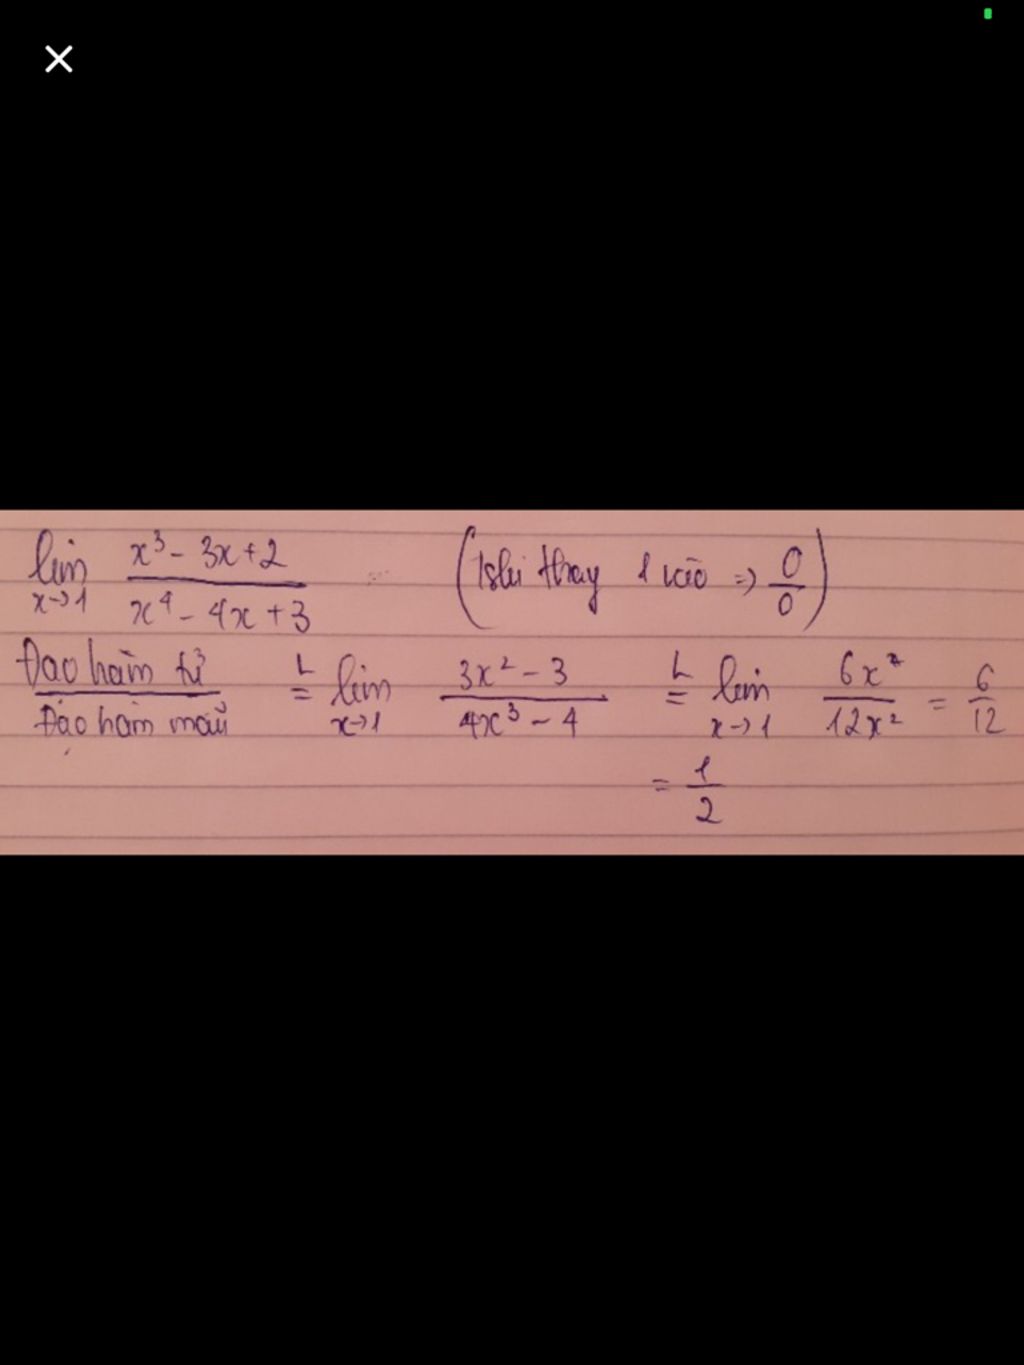 lim x→1 x³ - 3x + 2 / x⁴ - 4x + 3 (Khi thay 1 vào => 0/0)
Đạo hàm tử / Đạo hàm mẫu =ᴸ lim x→1 3x² - 3 / 4x³ - 4 =ᴸ lim x→1 6x² / 12x² = 6/12
= 1/2